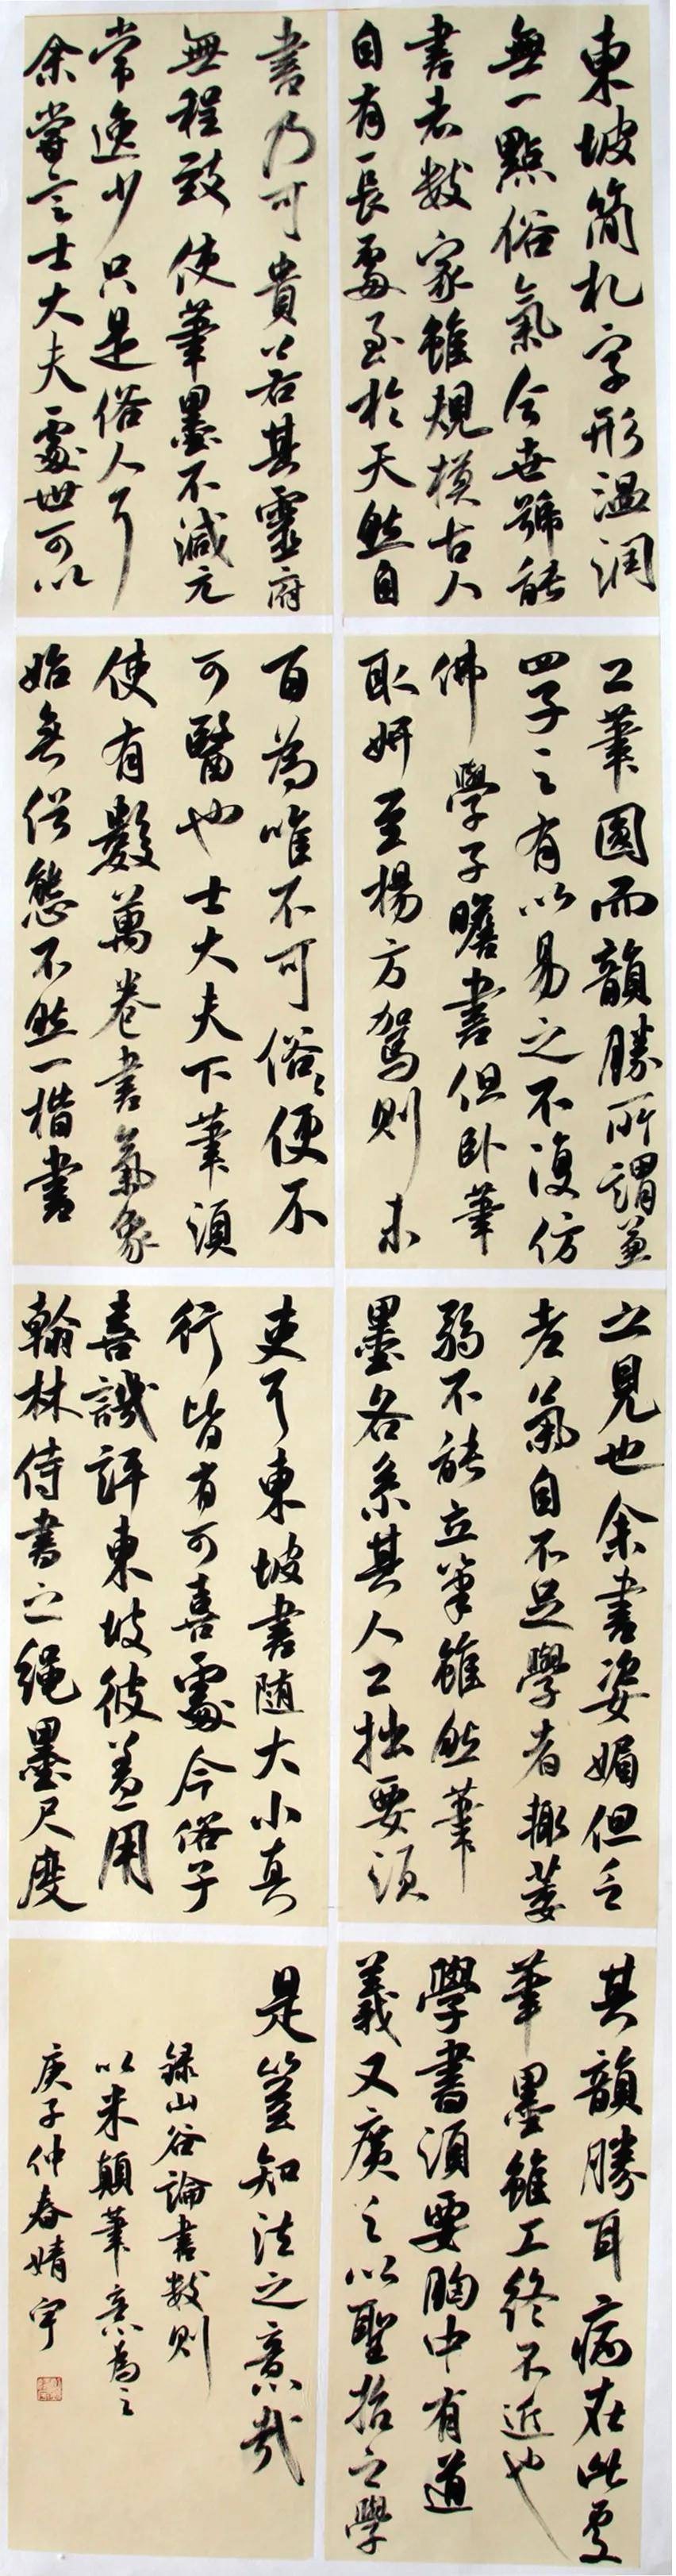 東坡簡札字形溫潤
無一點俗氣今世號能
書者數家雖規模古人
自有長處至於天然自
工筆圓而韻勝所謂兼
四子之有以易之不復仿
佛學子瞻書但臥筆
取妍至楊方駕則未
之見也余書姿媚但乏
老氣自不足學者輒萎
弱不能立筆雖然筆
墨各系其人工拙要須
其韻勝耳病在此處
筆墨雖工終不近也
學書須要胸中有道
義又廣之以聖哲之學
書乃可貴若其靈府
無程致使筆墨不減元
常逸少只是俗人耳
余嘗言士大夫處世可以
百為唯不可俗〻便不
可醫也士大夫下筆須
使有數萬卷書氣象
始無俗態不然一楷書
吏耳東坡書随大小真
行皆有可喜處今俗子
喜譏評東坡彼蓋用
翰林侍書之繩墨尺度
是豈知法之意哉
錄山谷論書數則
以米顛筆意為之
庚子仲春婧宇